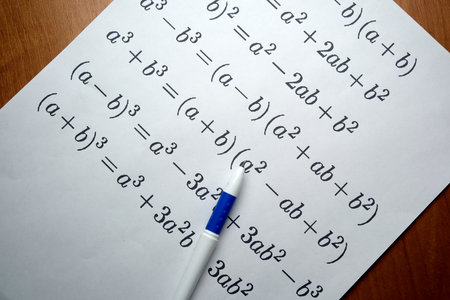 b)(a + b)
= a² + 2ab + b²
b)² = a² − 2ab + b²
a³ − b³ = (a − b)(a² + ab + b²)
a³ + b³ = (a + b)(a² − ab + b²)
(a − b)³ = a³ − 3a² + 3ab² − b³
(a + b)³ = a³ + 3a²b 3ab²